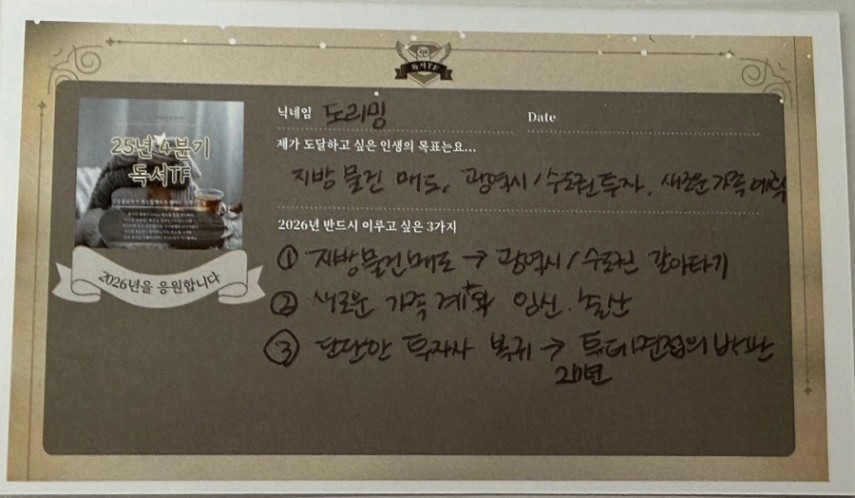 독서TF
25년 4분기
독서TF
2026년을 응원합니다
닉네임 도리밍
Date
제가 도달하고 싶은 인생의 목표는요...
지방 물건 매도, 광역시/수도권 투자, 새로운 가족 계획
2026년 반드시 이루고 싶은 3가지
① 지방물건매도 → 광역시/수도권 갈아타기
② 새로운 가족 계획 임신.출산
③ 단단한 투자자 복귀 →